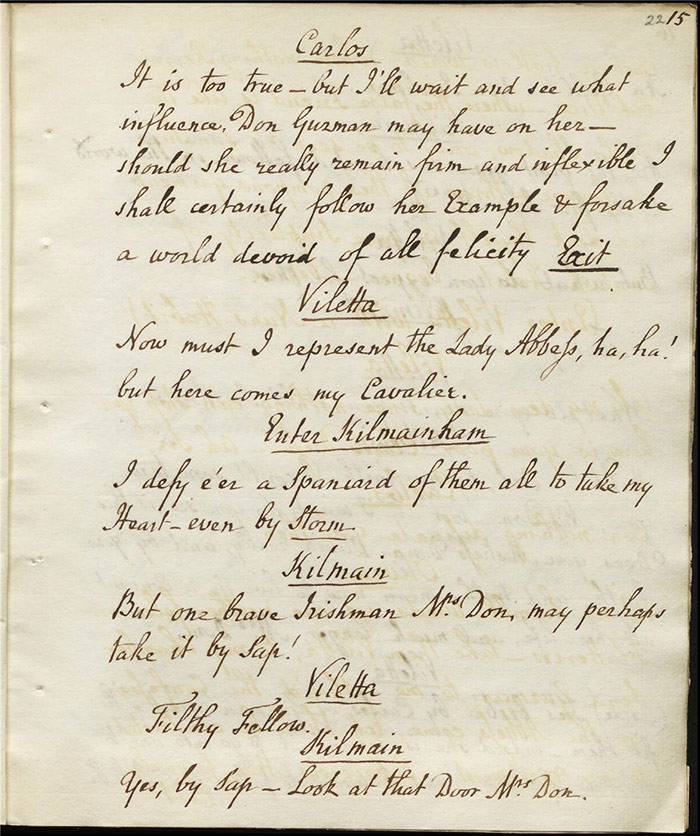 22 15
Carlos
It is too true – but I'll wait and see what
influence, Don Guzman may have on her –
should she really remain firm and inflexible I
shall certainly follow her Example & forsake
a world devoid of all felicity Exit
Viletta
Now must I represent the Lady Abbeſs, ha, ha!
but here comes my Cavalier.
Enter Kilmainham
I defy e'er a Spaniard of them all to take my
Heart – even by Storm.
Kilmain
But one brave Irishman Mrs Don, may perhaps
take it by Sap!
Viletta
Filthy Fellow.
Kilmain
Yes, by Sap – Look at that Door Mrs Don.